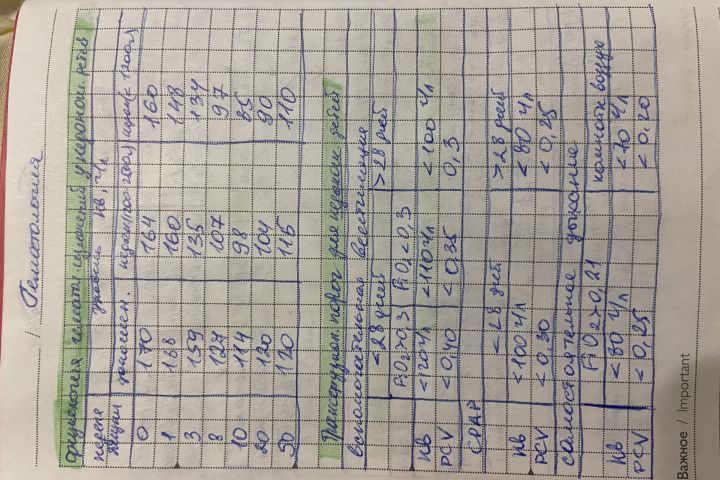 Гематология
Физиология гематол. изменений у недонош. детей
неделя жизни уровень Hb, г/л
доношен. недонош(1200-2500г) недон(<1200г)
0 170 164 160
1 188 160 148
3 159 135 134
8 127 107 97
10 114 98 85
20 120 104 90
50 120 115 110
Трансфузион. порог для недонош. детей
вспомогательная вентиляция
<28 дней >28 дней
FiO2>0,3 FiO2<0,3
Hb <120 г/л <110 г/л <100 г/л
PCV <0,40 <0,35 0,3
CPAP
<28 дней >28 дней
Hb <100 г/л <80 г/л
PCV <0,30 <0,25
самостоятельное дыхание
FiO2>0,21 комнатн. воздух
Hb <80 г/л <70 г/л
PCV <0,25 <0,20
Важное / Important